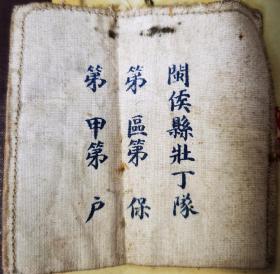 閩侯縣壯丁隊
第 區第 保
第 甲第 戶